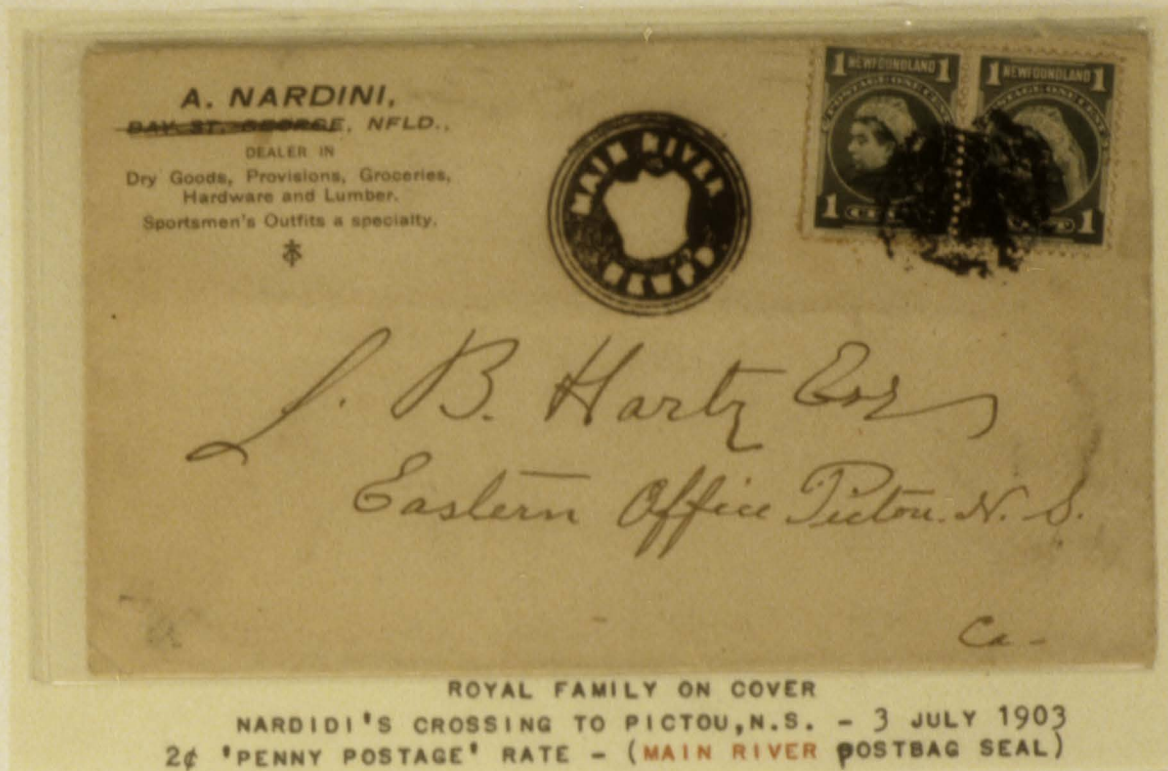 A. NARDINI,
BAY ST. GEORGE, NFLD.,
DEALER IN
Dry Goods, Provisions, Groceries,
Hardware and Lumber.
Sportsmen's Outfits a specialty.
MAIN RIVER
NEWFD.
1 NEWFOUNDLAND 1
POSTAGE ONE CENT
1 1
1 NEWFOUNDLAND 1
POSTAGE ONE CENT
1
B. Hartz Esq
Eastern Office Pictou. N. S.
Ca-
ROYAL FAMILY ON COVER
NARDIDI'S CROSSING TO PICTOU,N.S. - 3 JULY 1903
2¢ 'PENNY POSTAGE' RATE - (MAIN RIVER POSTBAG SEAL)